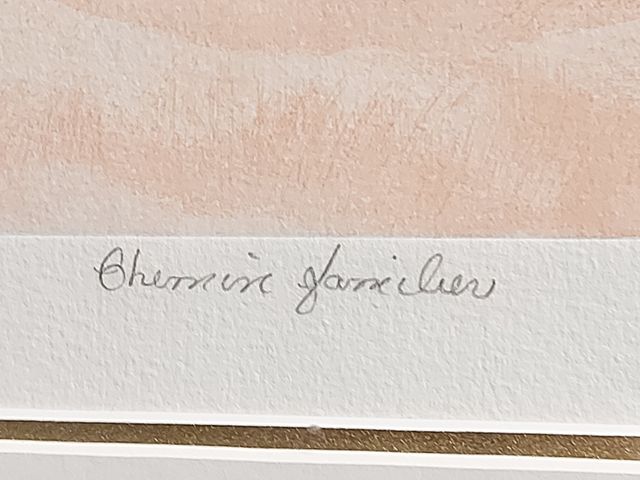 Chemin familier